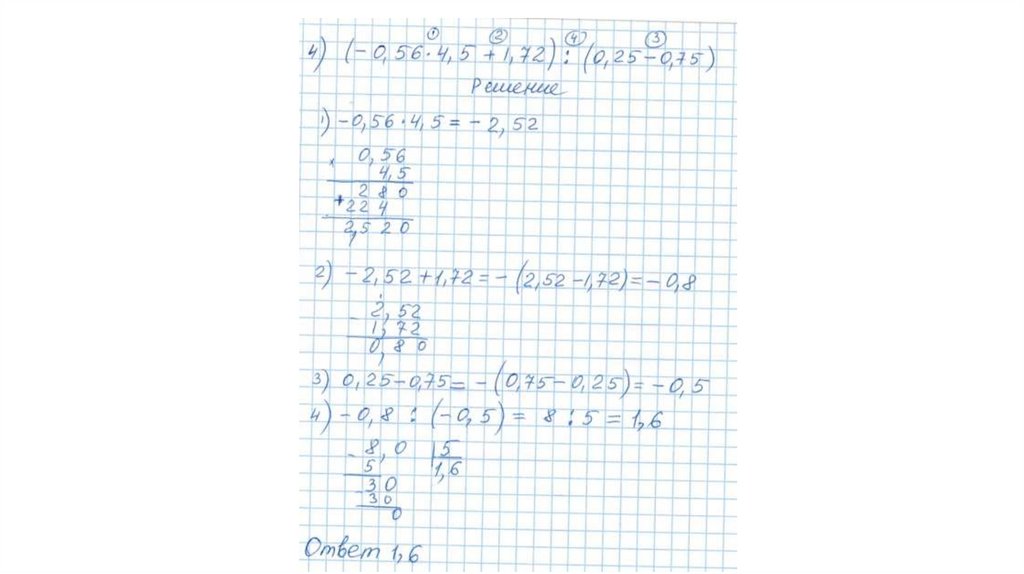 ① ② ④ ③
4) (-0,56·4,5+1,72):(0,25-0,75)
Решение
1) -0,56·4,5=-2,52
× 0,56
4,5
2 8 0
+ 2 2 4
2,5 2 0
2) -2,52+1,72=-(2,52-1,72)=-0,8
- 2,52
1,72
0,80
3) 0,25-0,75=-(0,75-0,25)=-0,5
4) -0,8:(-0,5)= 8:5=1,6
- 8,0 5
5 1,6
- 30
30
0
Ответ 1,6